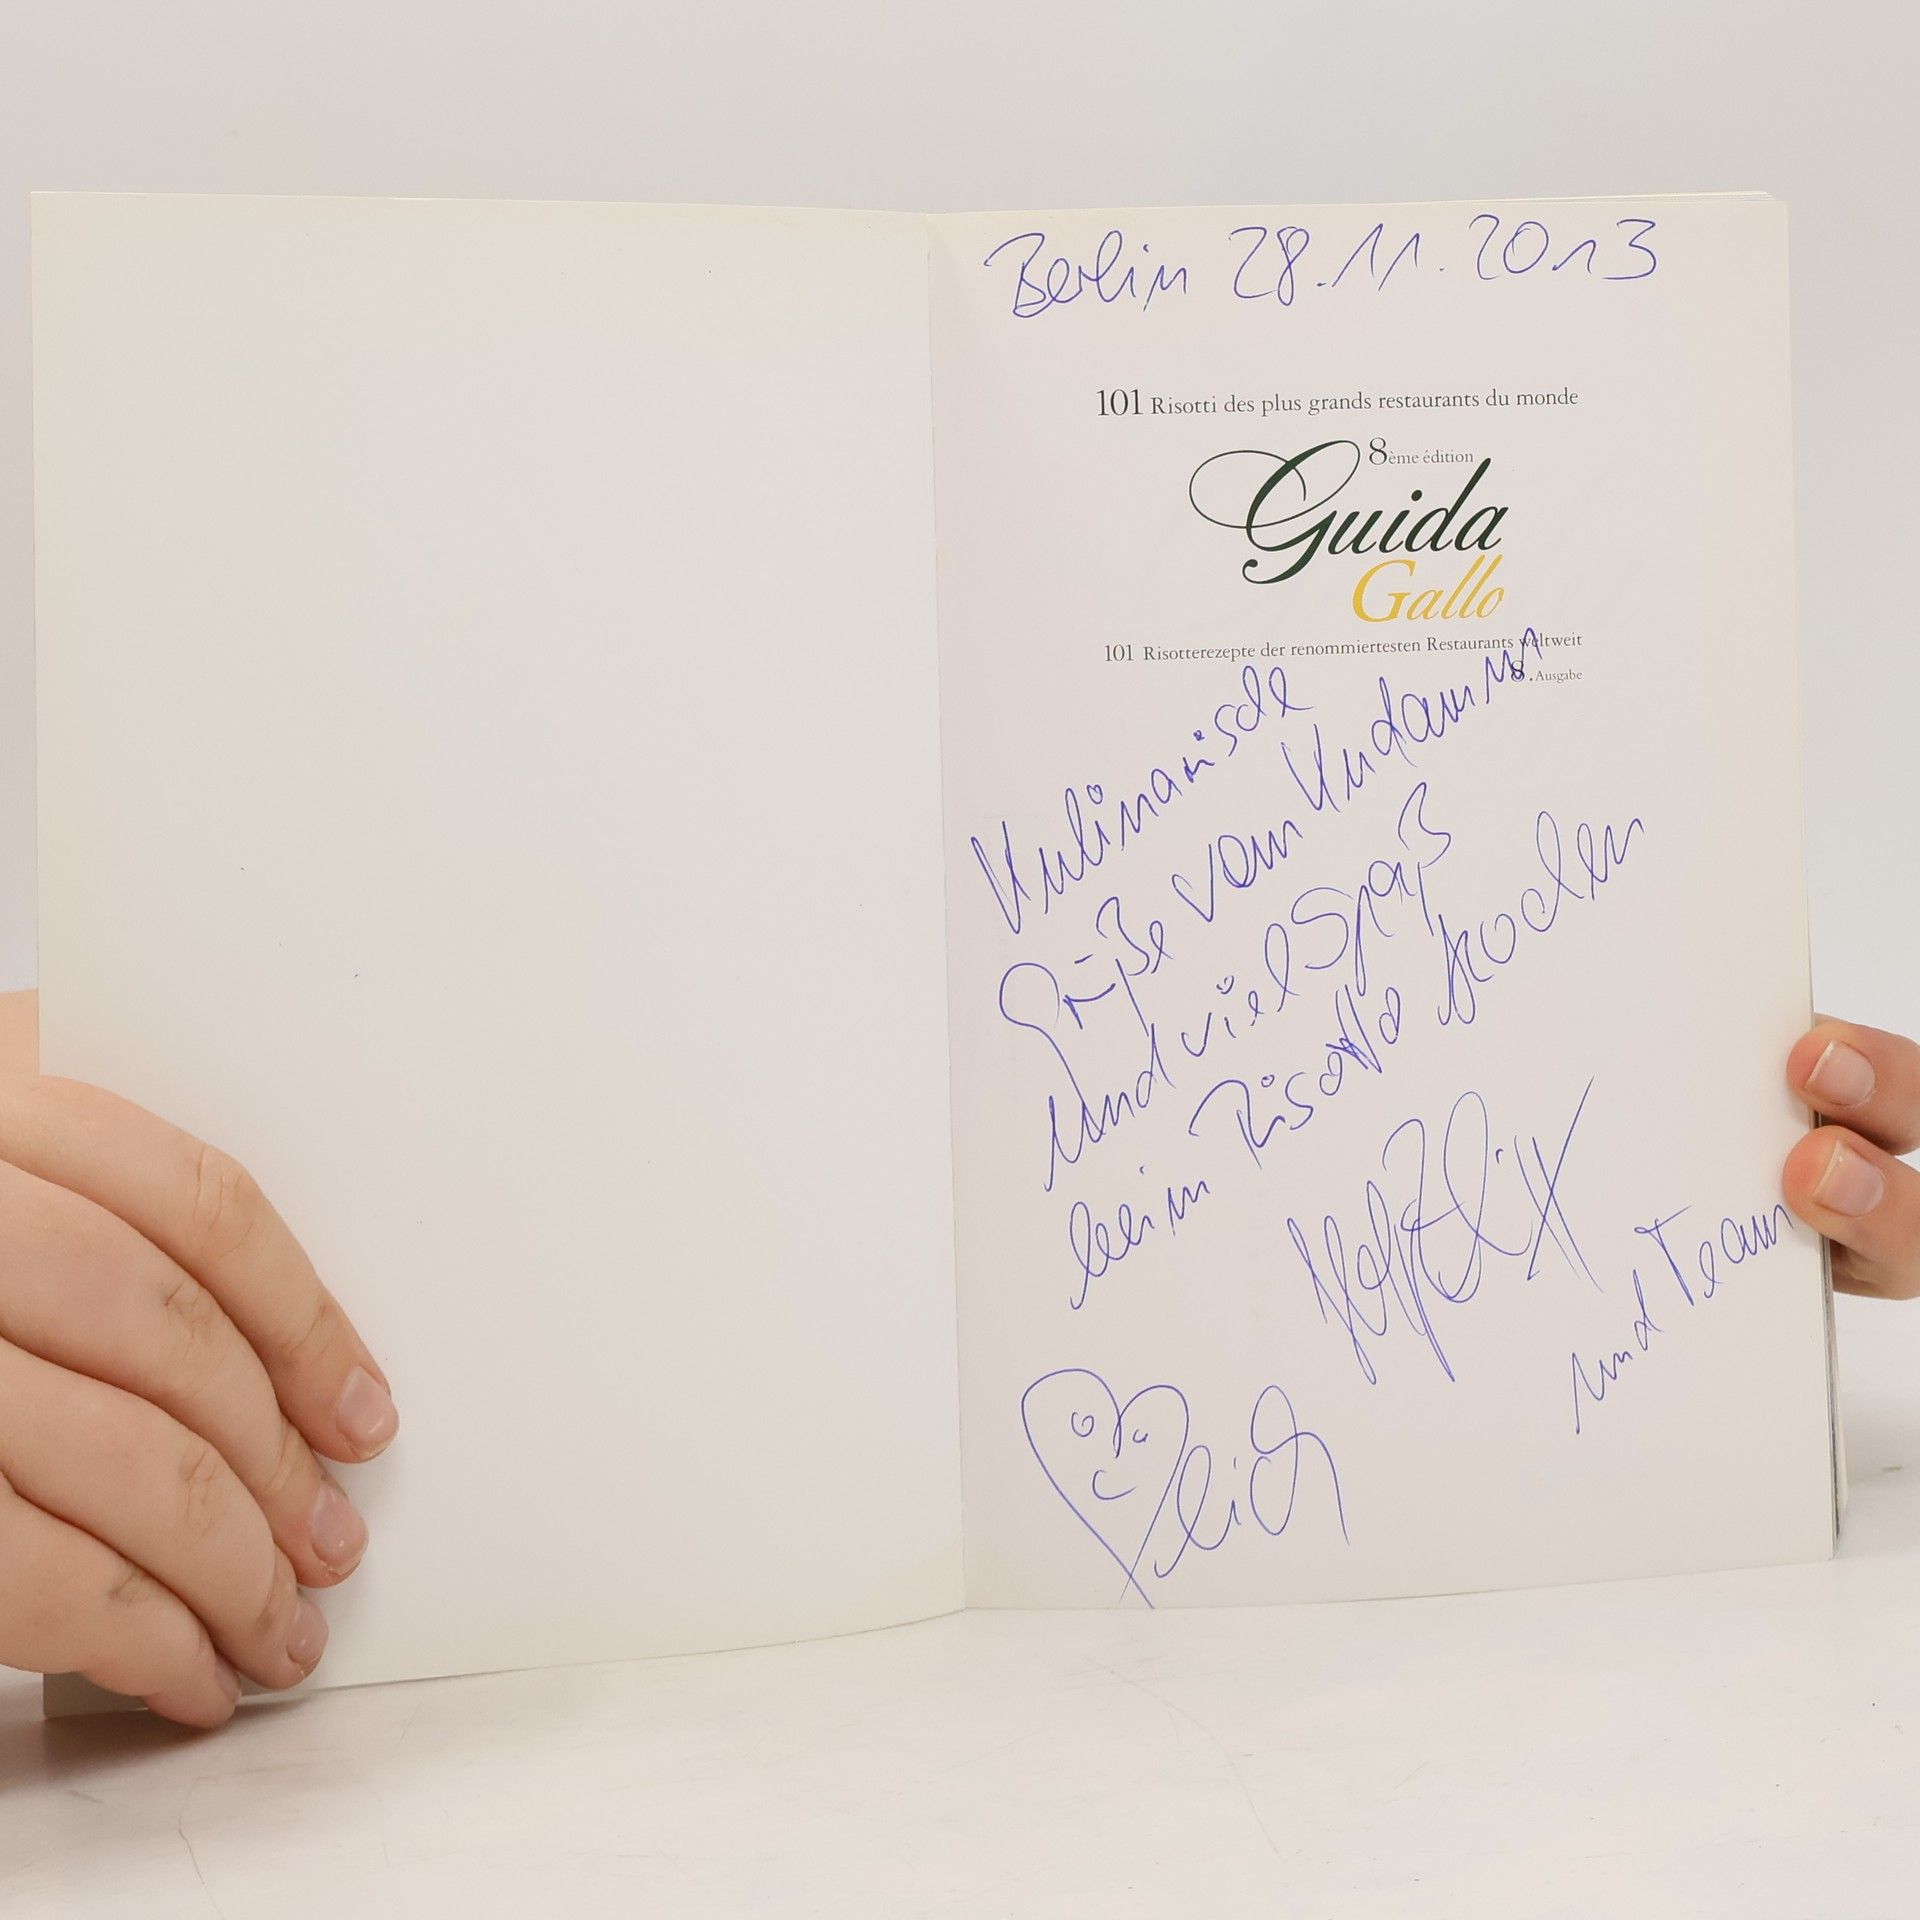 Berlin 28.11.2013
101 Risotti des plus grands restaurants du monde
8ème édition
Guida
Gallo
101 Risotterezepte der renommiertesten Restaurants weltweit
8. Ausgabe
Kulinarische
Grüße vom Kudamm
und viel Spaß
beim Risotto kochen
und Team